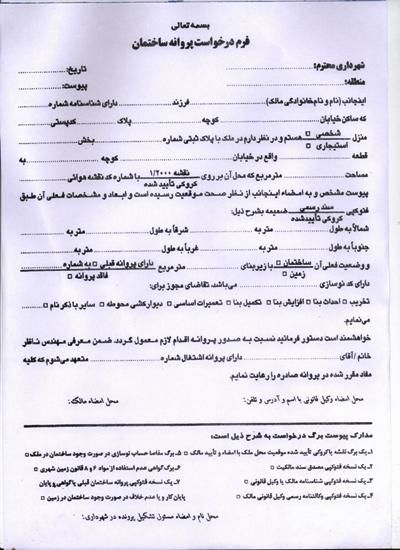 بسمه تعالی
فرم درخواست پروانه ساختمان
شهرداری محترم: .......... تاریخ: ..........
منطقه: .......... پیوست: ..........
اینجانب (نام و نام خانوادگی مالک) .......... فرزند .......... دارای شناسنامه شماره ..........
که ساکن خیابان .......... کوچه .......... پلاک .......... کدپستی ..........
منزل شخصی □ استیجاری □ هستم و در نظر دارم در ملک با پلاک ثبتی شماره .......... بخش ..........
قطعه .......... واقع در خیابان .......... کوچه .......... به
مساحت .......... متر مربع که محل آن بر روی نقشه ۱/۲۰۰۰ کروکی تأیید شده با شماره کد نقشه هوائی ..........
پیوست مشخص و به امضاء اینجانب از نظر صحت موقعیت رسیده است و ابعاد و مشخصات فعلی آن طبق
فتوکپی سند رسمی کروکی تأیید شده ضمیمه بشرح ذیل:
شمالاً به طول .......... متر به .......... شرقاً به طول .......... متر به ..........
جنوباً به طول .......... متر به .......... غرباً به طول .......... متر به ..........
و وضعیت فعلی آن ساختمان □ زمین □ با زیربنای .......... متر مربع دارای پروانه قبلی □ به شماره .......... فاقد پروانه □
دارای کد نوسازی .......... می‌باشد، تقاضای مجوز برای:
تخریب □ احداث بنا □ افزایش بنا □ تکمیل بنا □ تعمیرات اساسی □ دیوارکشی محوطه □ سایر با ذکر نام □
می‌نمایم.
خواهشمند است دستور فرمائید نسبت به صدور پروانه اقدام لازم معمول گردد. ضمن معرفی مهندس ناظر
خانم / آقای .......... دارای پروانه اشتغال شماره .......... متعهد می‌شوم که کلیه
مفاد مقرر شده در پروانه صادره را رعایت نمایم.
محل امضاء وکیل قانونی با اسم و آدرس و تلفن: محل امضاء مالک:
مدارک پیوست برگ درخواست به شرح ذیل است:
۱- یک برگ نقشه یا کروکی تأیید شده موقعیت محل ملک با امضاء و تأیید مالک □ ۵- برگ مفاصا حساب نوسازی در صورت وجود ساختمان در ملک □
۲- یک نسخه فتوکپی مصدق سند مالکیت □ ۶- برگ گواهی عدم استفاده از مواد ۶ و ۸ قانون زمین شهری □
۳- یک نسخه فتوکپی شناسنامه مالک یا وکیل قانونی □ ۷- یک نسخه فتوکپی پروانه ساختمان قبلی یا گواهی و پایان
۴- یک نسخه فتوکپی وکالتنامه رسمی وکیل قانونی مالک □ پایان کار و یا عدم خلاف در صورت وجود ساختمان در زمین □
محل نام و امضاء مسئول تشکیل پرونده در شهرداری: